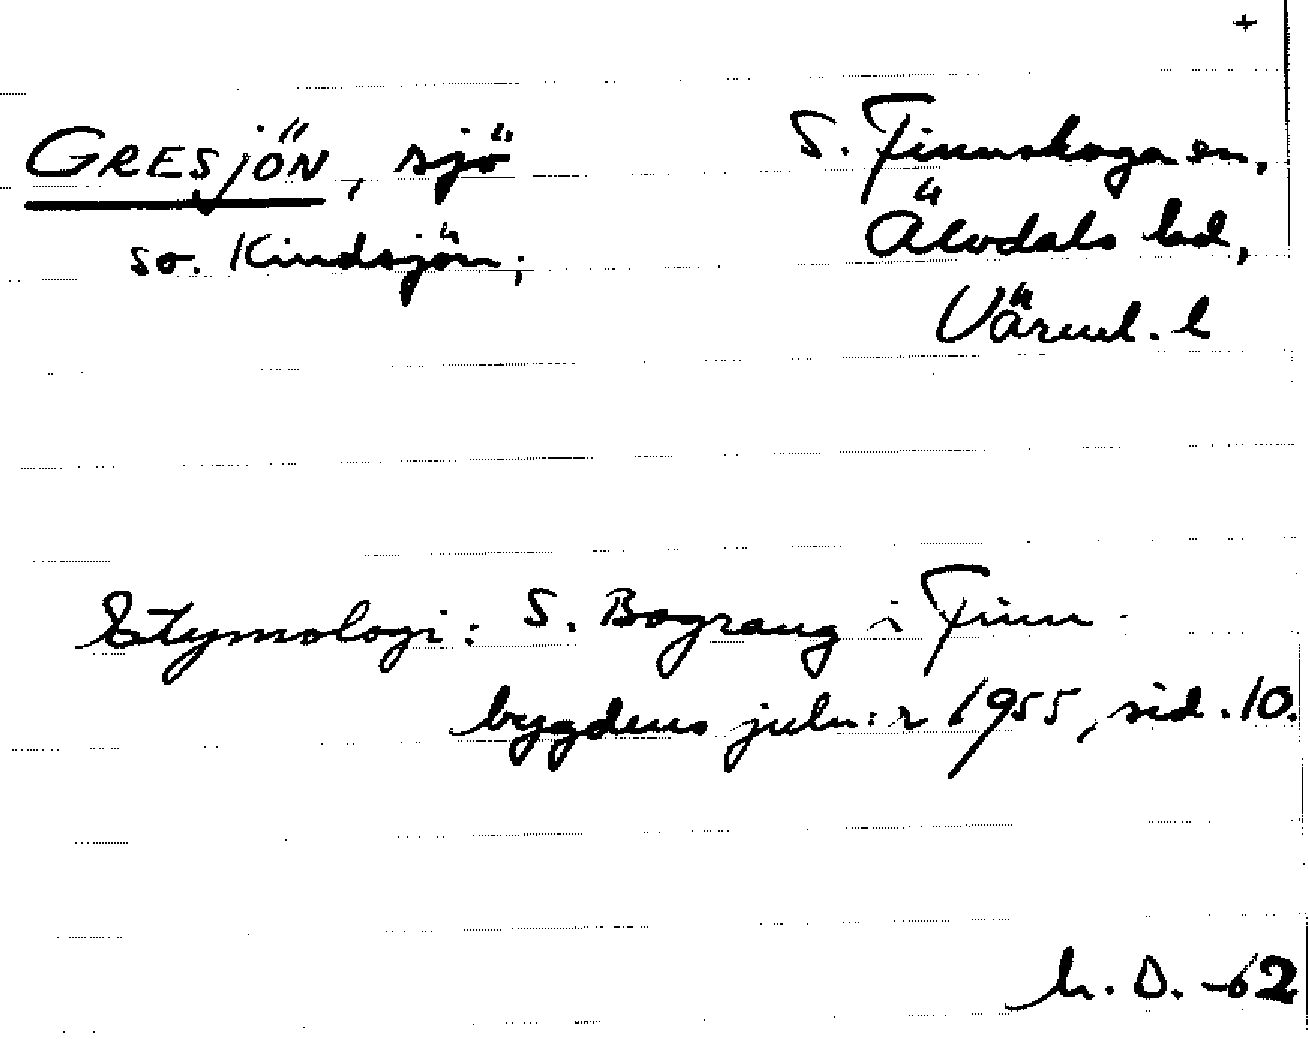 +
GRESJÖN, sjö
so. Kindsjön;
S. Finnskoga sn,
Älvdals hd,
Värml. l
Etymologi: S. Bograng i Finn-
bygdens juln:r 1955, sid. 10.
h. D. -62